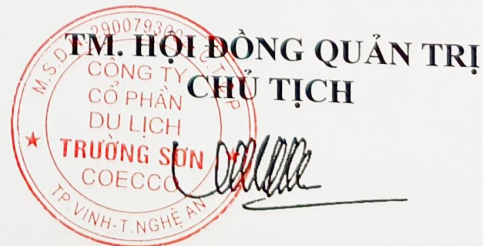 TM. HỘI ĐỒNG QUẢN TRỊ
CHỦ TỊCH
CÔNG TY
CỔ PHẦN
DU LỊCH
TRƯỜNG SƠN
COECCO
TP VINH-T.NGHỆ AN